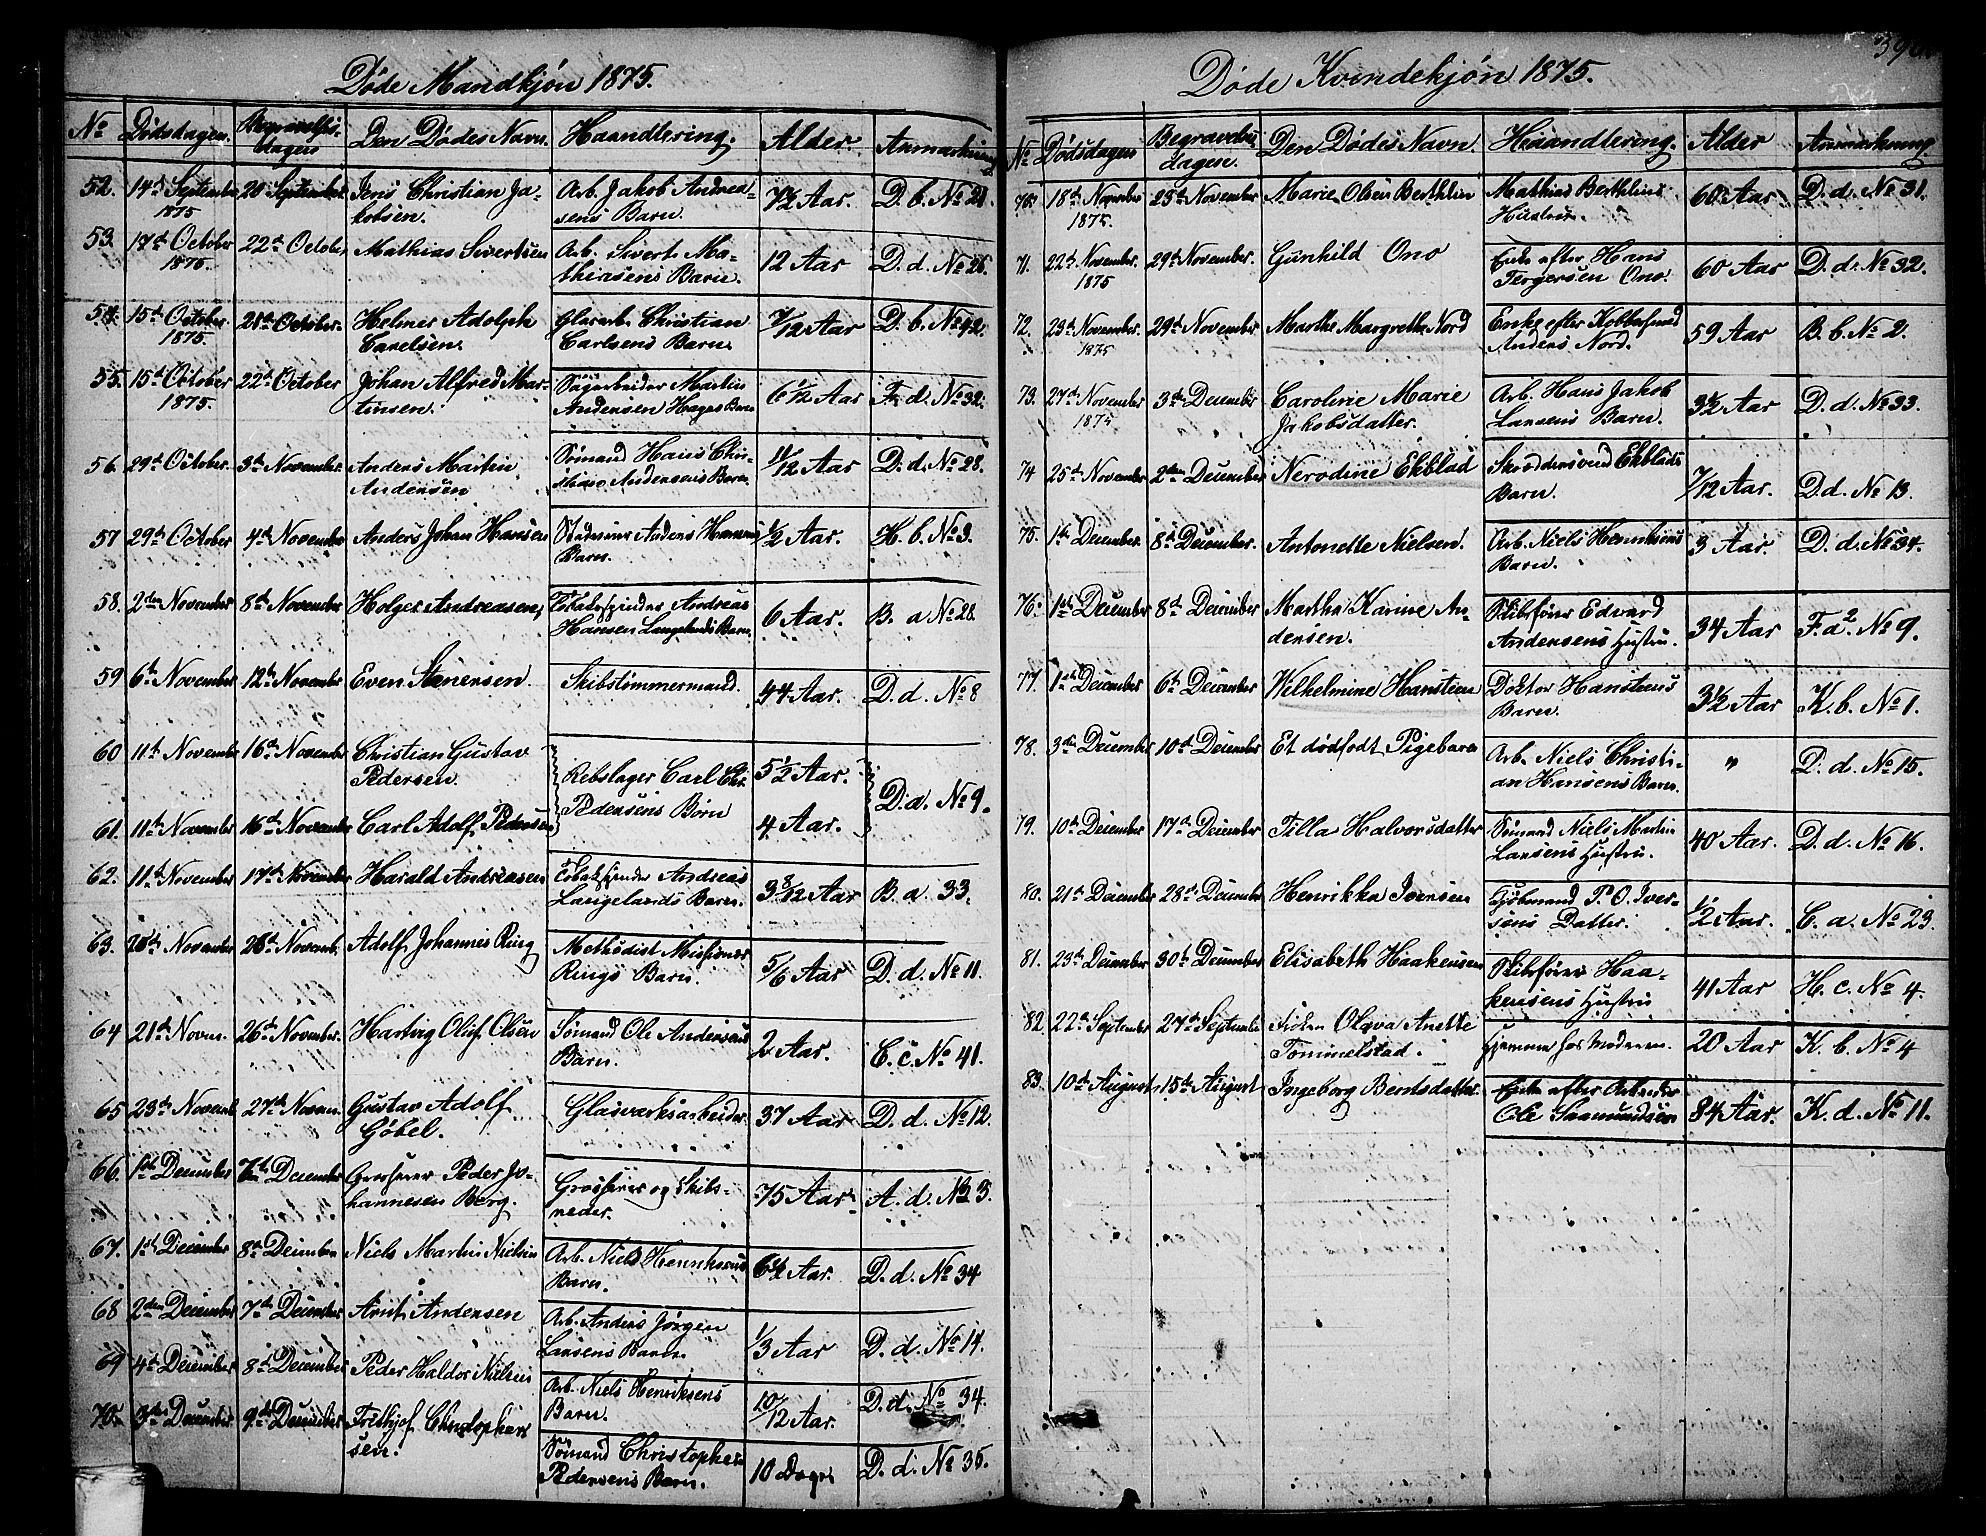 Døde Mandkjøn 1875.
No Dødsdagen. Begravelsesdagen Den Dødes Navn. Haandtering. Alder. Anmærkning
52. 14de September 1875 20 September Jens Christian Jakobsen. Arb. Jakob Andreasens Barn. Aar. D. b. No 21.
53. 17de October 1875. 22de October Mathias Sivertsen Arb. Sivert Mathiasens Barn. 12 Aar D. d. No 26.
54. 15de October 1875. 21de October. Helmer Adolph Carelsen. Glasarb. Christian Carlsens Barn. 7/12 Aar D. b. No 42.
55. 15de October 1875. 22de October Johan Alfred Martinsen. Sagarbeider Martin Andersen Hages Barn 6 1/2 Aar F. d. No 32.
56. 29de October. 3de November. Anders Martin Andersen Sømand Hans Christian Andersens Barn. 11/12 Aar D. d. No 28.
57 29de October 4de November Anders Johan Hansen Anders Hansens Barn. 1/2 Aar. H. b. No 3.
58. 2den November 8de November Holger Andreasen, Tobakspinder Andreas Hansen Langelands Barn. 6 Aar. B. a No 28.
59 6te November 12te November Even Stenersen. Skibstømmermand. 44 Aar. D. d. No 8
60 11te November 16de November Christian Gustav Pedersen. Rebslager Carl Chr. Pedersens Børn 5 1/2 Aar. D. d. No 9.
61. 11te November 16de November Carl Adolf Pedersen 4 Aar.
62. 11te November 17de November Harald Andreasen Tobakspinder Andreas Langelands Barn. 3 8/12 Aar B. a. 33.
63. November 26de Novemb. Adolf Johannes Ring Methodist Missionær Rings Barn. 5/6 Aar D. d. No 11.
64 21de Novem. 26de November. Hartvig Oluf Olsen Sømand Ole Andersens Barn. 2 Aar. C. c. No 41.
65 23de Novemb 27de Novem. Gustav Adolf Göbel. Glasværksarbeider. 37 Aar D. d. No 12.
66. 1ste December 7de December Grosserer Peder Johannesen Berg. Grosserer og Skibsreder. 75 Aar. A. d. No 3.
67. 1ste December 8de December Niels Martin Nielsen Arb. Niels Henriksens Barn. 6 1/2 Aar. D. d. No 34
68 2den December 7de December Arnt Andersen Arb. Anders Jørgen Larsens Barn. 1/3 Aar D. d. No 14.
69 4de December 8de December Peder Haldor Nielsen Arb. Niels Henriksens Barn. 10/12 Aar. D. d. No 34.
70. 3de December 9de December Frithjof Christophersen. Sømand Christopher Pedersens Barn. 10 Dage D. d. No 35.
Døde Kvindekjøn 1875.
No Dødsdagen Begravelsesdagen. Den Dødes Navn. Haandtering. Alder Anmærkning.
70. 18de November 1875. 25de November Marie Olsen Berthlin Mathias Berthlins Hustru. 60 Aar D. d. No 31.
71. 22de November. 1875 29de November. Gunhild Ono Enke efter Hans Tergersen Ono. 60 Aar D. d. No 32.
72. 23de November. 1875 29de November Marthe Margrethe Nord Enke efter Kobbersmed Anders Nord. 59 Aar B. b. No 2.
73. 27de November 1875 3de December Caroline Marie Jakobsdatter. Arb. Hans Jakob Larsens Barn. 3 1/2 Aar D. d. No 33.
74 25de November 2den December Nerodine Ekblad Skræddersvend Ekblads Barn. 7/12 Aar. D. d. No 13.
75. 1ste December. 8de December. Antonette Nielsen. Arb. Niels Henriksens Barn. 3 Aar. D. d. No 34.
76. 1ste December 8de December Martha Karine Andersen. Skibsfører Edvard Andersens Hustru. 34 Aar F. a2. No 9.
77. 1ste December 6te December Wilhelmine Hansteen Doktor Hansteens Barn. 3 1/2 Aar K. b. No 1.
78. 3de December 10de December Et dødfødt Pigebarn Arb. Niels Christian Hansens Barn. " D. d. No 15.
79. 10de December 17de December Tilla Halvorsdatter Sømand Niels Martin Larsens Hustru. 40 Aar. D. d. No 16.
80. 21de December 28de December Henrikka Iversen Kjøbmand P. O. Iversens Datter. 1/2 Aar. C. a. No 23.
81. 23de December 30te December Elisabeth Haakensen Skibsfører Haakensens Hustru 41 Aar H. c. No 4.
82. 22de September 27de September Frøken Olava Anette Tommelstad. Hjemme hos Moderen. 20 Aar K. b. No 4
83. 10de August 15de August Ingeborg Berntsdatter Enke efter Arbeider Ole Saamundsen 84 Aar. K. d. No 11.